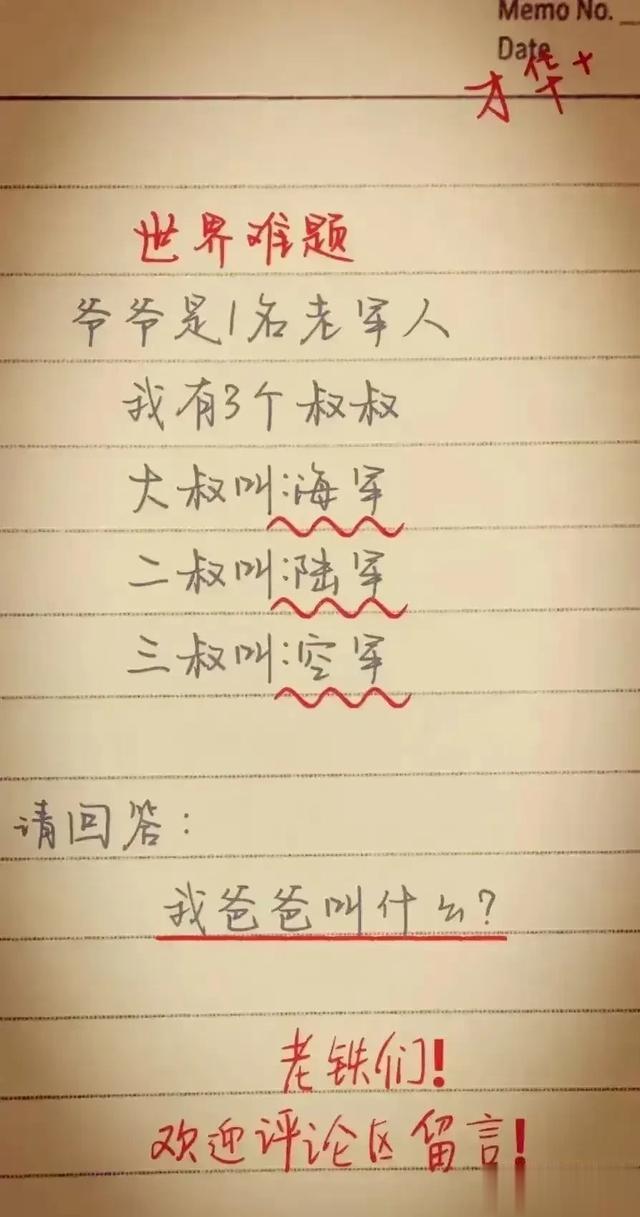 Memo No.
Date
才华+
世界难题
爷爷是1名老军人
我有3个叔叔
大叔叫:海军
二叔叫:陆军
三叔叫:空军
请回答:
我爸爸叫什么?
老铁们!
欢迎评论区留言!